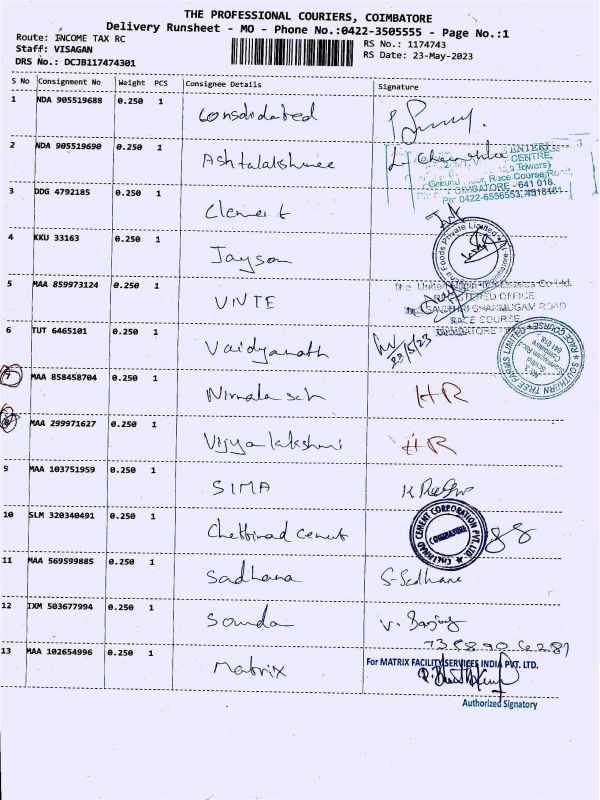 THE PROFESSIONAL COURIERS, COIMBATORE
Delivery Runsheet - MO - Phone No.:0422-3505555 - Page No.:1
Route: INCOME TAX RC
Staff: VISAGAN
RS No.: 1174743
DRS No.: DCJB117474301
RS Date: 23-May-2023
S No Consignment No Weight PCS Consignee Details Signature
1 NDA 905519688 0.250 1 Consolidated
2 NDA 905519690 0.250 1 Ashtalakshmee
ENTERP
CENTRE,
Towers)
Ground Floor, Race Course Road,
COIMBATORE - 641 018.
Ph: 0422-6556553, 4518461
3 DDG 4792185 0.250 1 Clement
4 KKU 33163 0.250 1 Jayson
Foods Private Limited
5 MAA 859973124 0.250 1 UNTE
The United
REGISTERED OFFICE
SHANMUGAM ROAD
RACE COURSE
COIMBATORE
6 TUT 6465101 0.250 1 Vaidyanath
23/5/23
SOUTHERN TREE FARMS LIMITED
RACE COURSE
641 018
7 MAA 858458704 0.250 1 Nirmala sch HR
8 MAA 299971627 0.250 1 Vijyalakshmi HR
9 MAA 103751959 0.250 1 SIMA
10 SLM 320340491 0.250 1 Chettinad cement
CHETTINAD CEMENT CORPORATION PVT. LTD.
COIMBATORE
11 MAA 569599885 0.250 1 Sadhana S-Sadhana
12 IXM 503677994 0.250 1 Sounda
13 MAA 102654996 0.250 1 Matrix
For MATRIX FACILITY SERVICES INDIA PVT. LTD.
Authorized Signatory